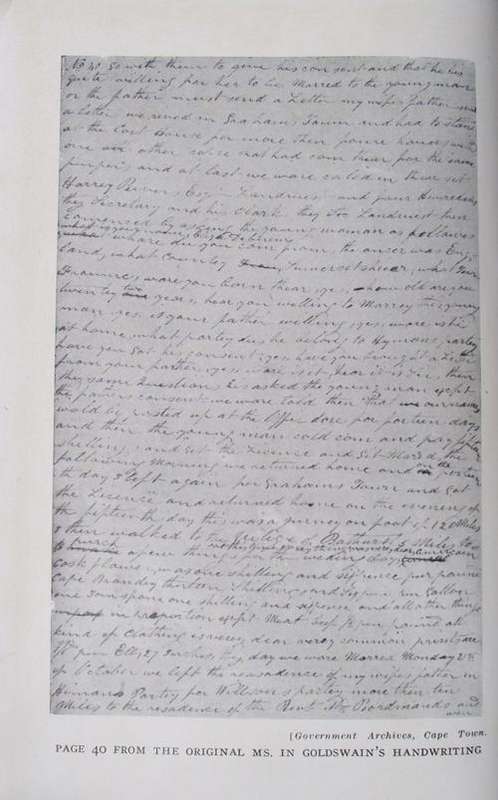 No 40 so with them to give his con sent and that he his
quite willing for her to be Marred to the young man
or the father must send a Letter my wifes father send
a letter we arived in Grahams Town and had to stand
at the Cort House for more then foure houers with
one and other as we had com thear for the same
purpes, and at last we ware caled in thear set
Harrey Rivers, Esqr Landrues and
they Secretary and his Clark they Landrust
Comenced by asking the young woman as followes
what is your name, Eliza Debnum
whare du you Com from, the anser was Eng
land, what County Sumersetshear, what Town
Frume, ware you born thear, yes, how old are you
twenty years, hear you willing to Marrey this young
man yes, is your father willing, yes, ware is he
at home, what partey du he belong to Hymans partey
have you got his consent yes have you brought a Letter
from your farther, yes, ware is it, hear it is Sir, then
they same Questions he asked the young man exept
the fathers consent we ware told then that our names
wold be posted up at the Office dore for forteen days
and then the young man cold com and pay fifteen
shilling and get the Licence and get Mared, the
following Morning we returned home and on the forteen
th day I left again for Grahams Town and Got
the Lisence and returned home on the evening of
the fifteenth day this was a jurney on foot of 120 Miles
I then walked to the Village of Bathurst 5 Miles to
purch a feaw things for the weding day
Cost flower, was one shilling and sixpence per pound
Cape Brandey thirteen shillings and sixpence per Gallon
one Tom spoon one shilling and sixpence and all other things
in proportion exept Meat Beef per pound all
kind of Clothing is verey dear verey common print are
per Ell (27 Inches) they day we ware Marred Monday 2
of October we left the reasadence of my wifes father in
Hymans Partey for Willsons partey more then ten
Miles to the reasadence of the Revt Mr Boordmands and
[Government Archives, Cape Town.
PAGE 40 FROM THE ORIGINAL MS. IN GOLDSWAIN'S HANDWRITING